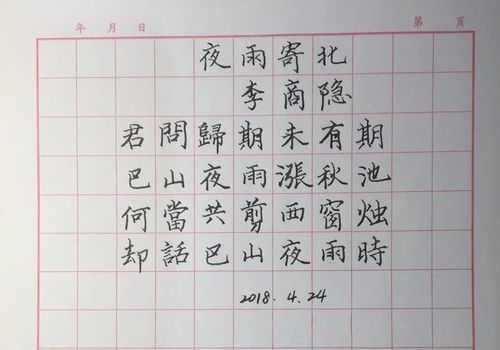 年 月 日 第 页
夜雨寄北
李商隐
君問歸期未有期
巴山夜雨漲秋池
何當共剪西窗烛
却話巴山夜雨時
2018.4.24